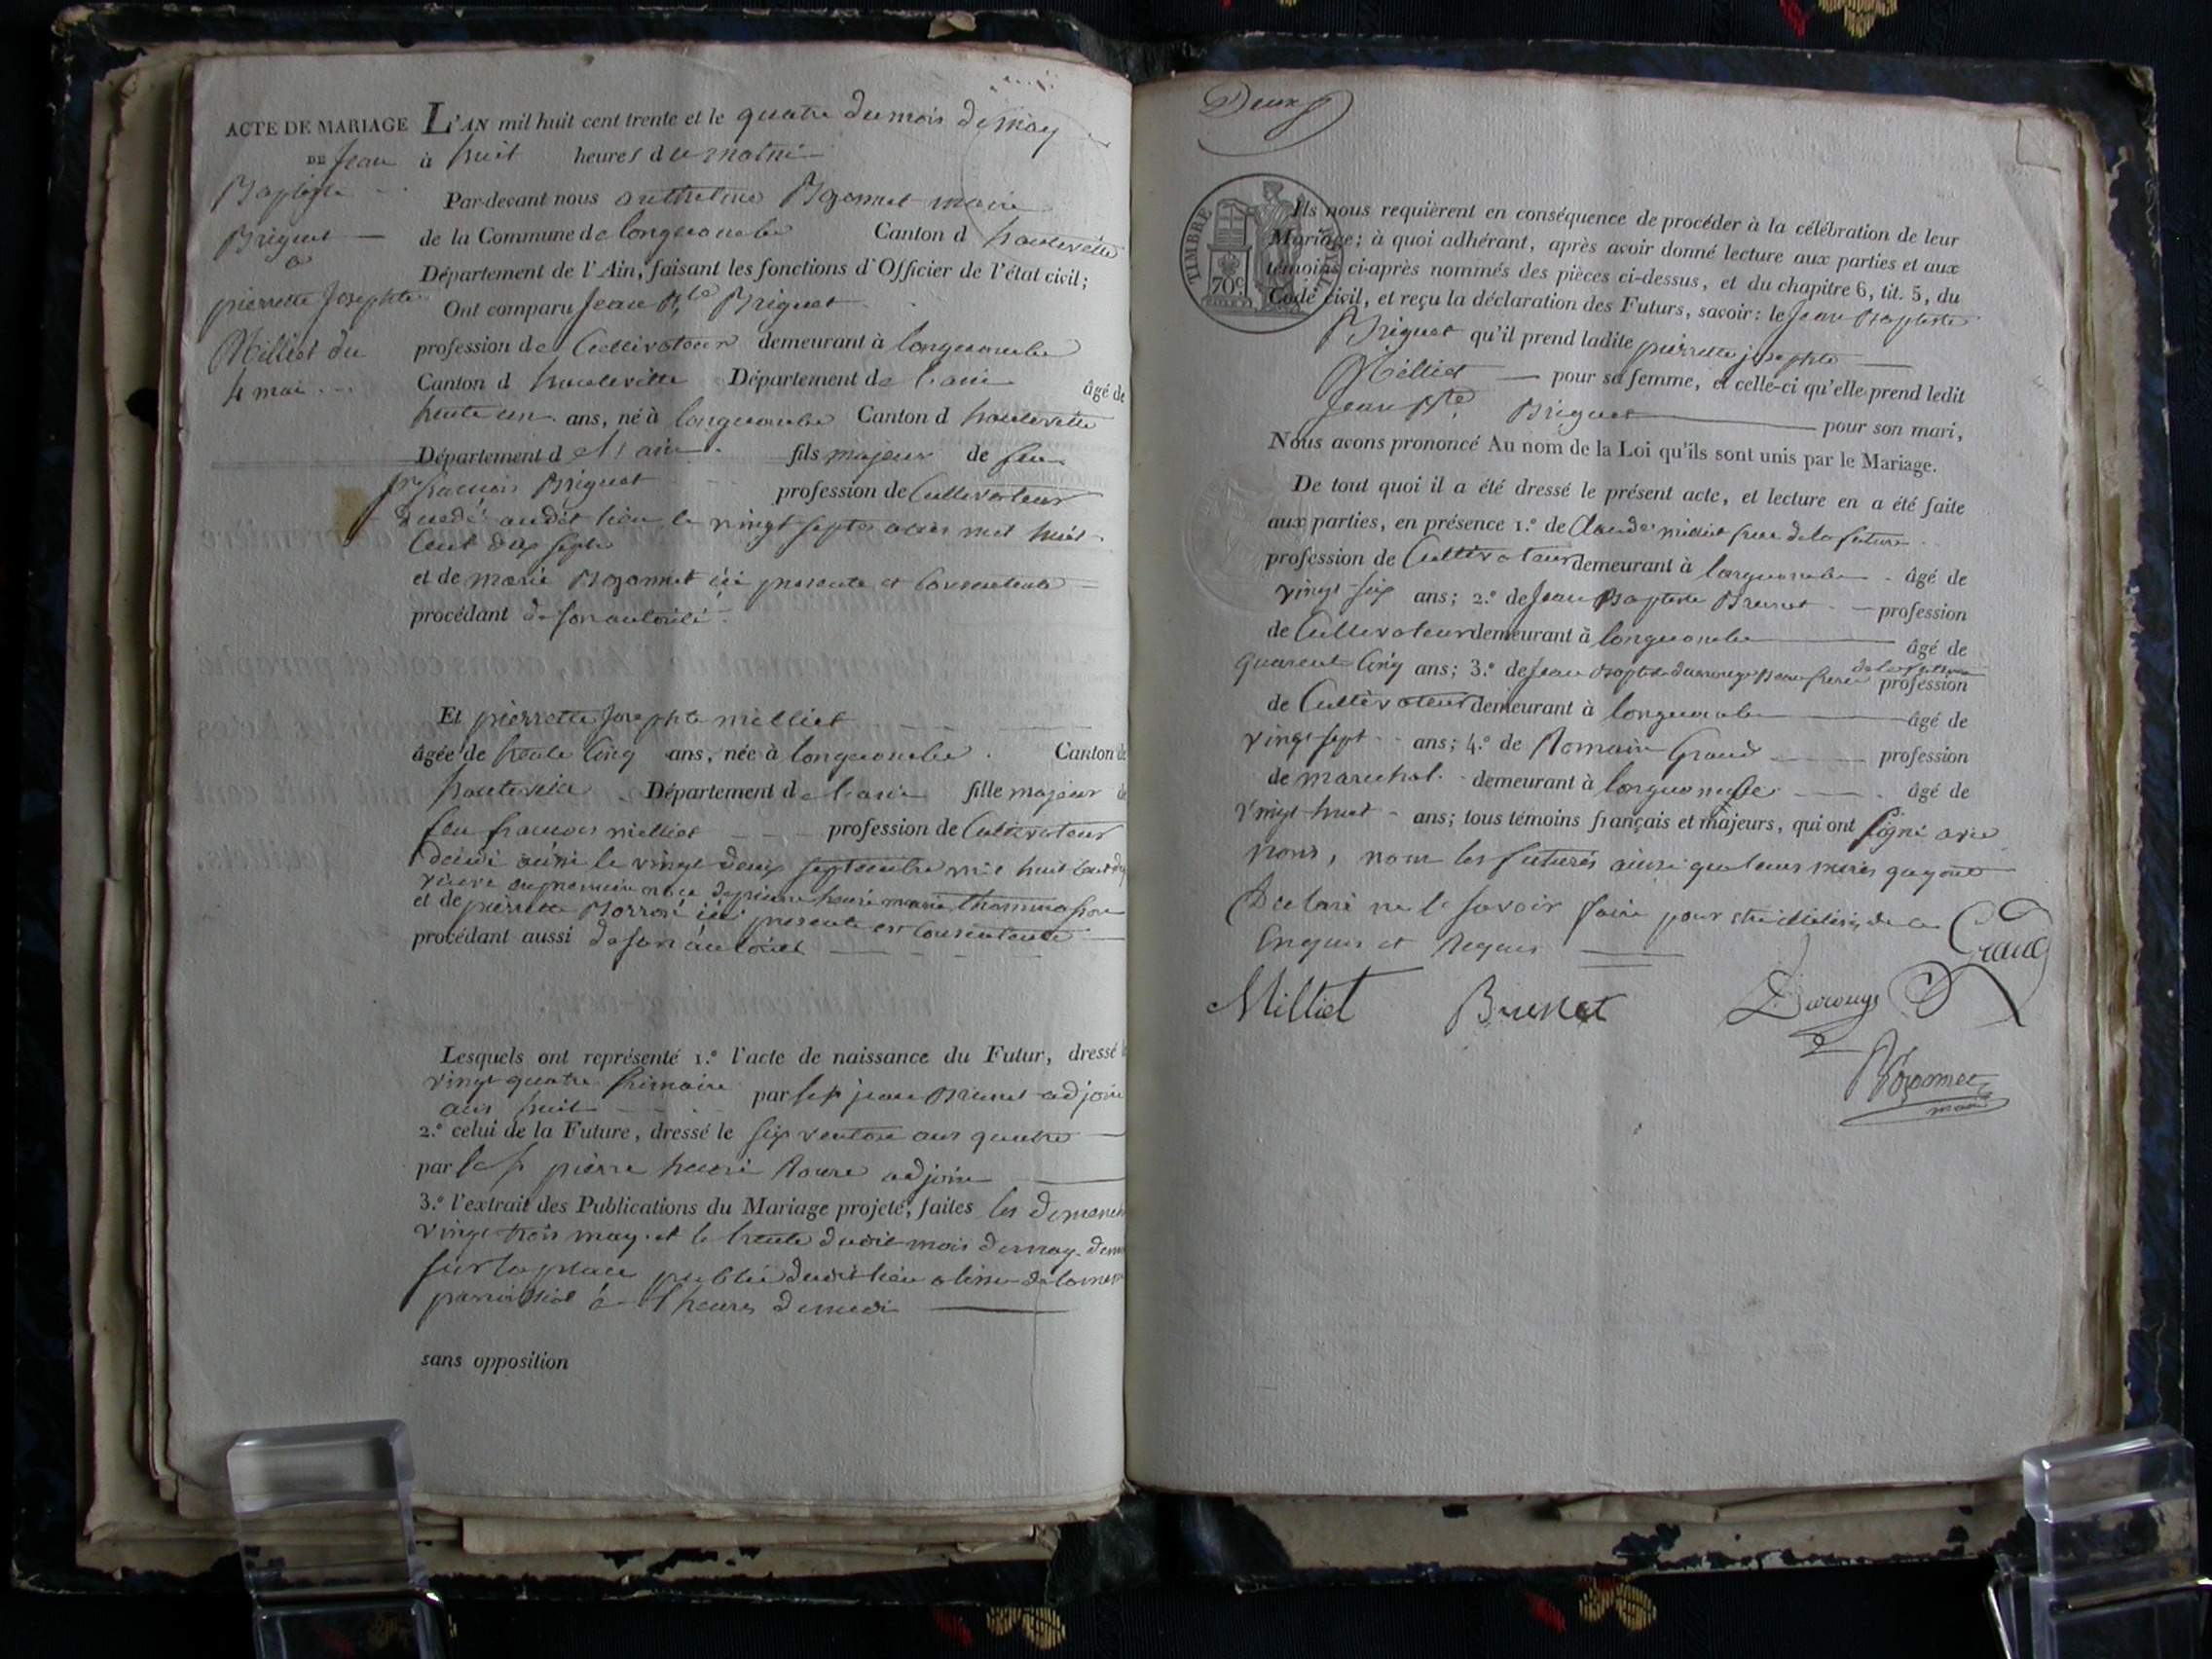 ACTE DE MARIAGE
DE Jean
Baptiste
Briguet
a
pierrette Josephte
Milliet du
4 mai
L'AN mil huit cent trente et le quatre du mois de may
à huit heures du matin
Par-devant nous anthelme Bozonnet maire
de la Commune de longecombe Canton d hauteville
Département de l'Ain, faisant les fonctions d'Officier de l'état civil;
Ont comparu Jean Bte Briguet
profession de Cultivateur demeurant à longecombe
Canton d hauteville Département de l'ain âgé de
trente un ans, né à longecombe Canton d hauteville
Département d el'ain fils majeur de feu
francois Briguet profession de Cultivateur
audit lieu le vingt sept mil huit
Cent dix sept
et de marie Bozonnet ici presente et Consentente
procédant de son autorité
Et pierrette Josephte milliet
âgée de trente Cinq ans, née à longecombe Canton de
hauteville Département de l'ain fille majeur de
feu francois milliet profession de Cultivateur
le vingt deux septembre mil huit Cent
et de pierrette ici presente et Consentente
procédant aussi de son autorité
Lesquels ont représenté 1.º l'acte de naissance du Futur, dressé le
vingt quatre frimaire
ans huit par le sr jean Brunet adjoin
2.º celui de la Future, dressé le six ventose ans quatre
par le sr pierre henri adjoin
3.º l'extrait des Publications du Mariage projeté, faites les
vingt trois may et le trente dudit mois de may
sur la place public dudit lieu a lissue de la
à heures de
sans opposition
Deux
TIMBRE
70 c.
Ils nous requièrent en conséquence de procéder à la célébration de leur
Mariage; à quoi adhérant, après avoir donné lecture aux parties et aux
témoins ci-après nommés des pièces ci-dessus, et du chapitre 6, tit. 5, du
Code civil, et reçu la déclaration des Futurs, savoir: le Jean Baptiste
Briguet qu'il prend ladite pierrette josephte
Milliet pour sa femme, et celle-ci qu'elle prend ledit
Jean Bte Briguet pour son mari,
Nous avons prononcé Au nom de la Loi qu'ils sont unis par le Mariage.
De tout quoi il a été dressé le présent acte, et lecture en a été faite
aux parties, en présence 1.º de Claude milliet frere de la future
profession de Cultivateur demeurant à longecombe âgé de
vingt six ans; 2.º de Jean Baptiste Brunet profession
de Cultivateur demeurant à longecombe âgé de
quarent Cinq ans; 3.º de Jean Baptiste Beau frere de la future profession
de Cultivateur demeurant à longecombe âgé de
vingt sept ans; 4.º de Romain Graud profession
de marechal demeurant à longecombe âgé de
vingt huit ans; tous témoins français et majeurs, qui ont signé avec
nous, non les futures ainsi que leurs meres qui ont
Declaré ne le savoir faire pour de ce
Enquis et Requis
Graud
Milliet Brunet
Bozonnet
maire